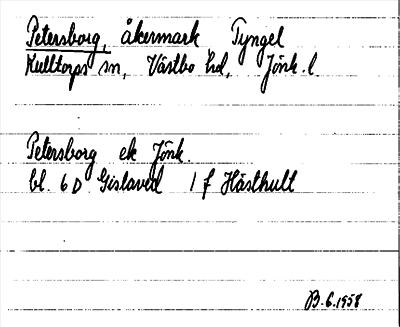 Petersborg, åkermark Tyngel
Kulltorps sn, Västbo hd, Jönk. l.
Petersborg ek Jönk.
bl. 6 D Gislaved 1 f Hästhult
B. 6. 1958